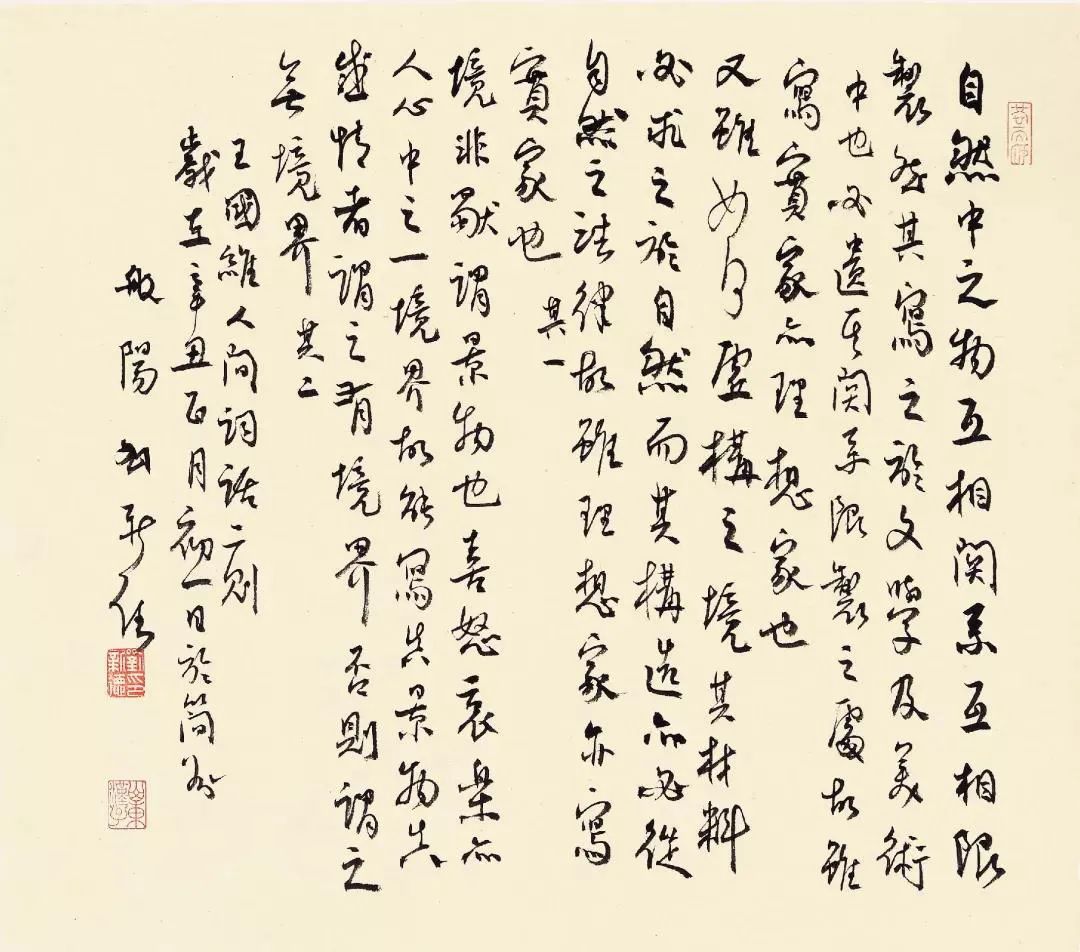 自然中之物互相関系互相限
製然其寫之於文學及美術
中也必遺其関系限製之處故雖
寫實家亦理想家也
又雖如何虛構之境其材料
必求之於自然而其構造亦必從
自然之法律故雖理想家亦寫
實家也 其一
境非獨謂景物也喜怒哀樂亦
人心中之一境界故能寫真景物真
感情者謂之有境界否則謂之
無境界 其二
王國維人间词話二则
歲在辛丑正月初一日於简齋
般陽 劉新德
劉新德印
山東